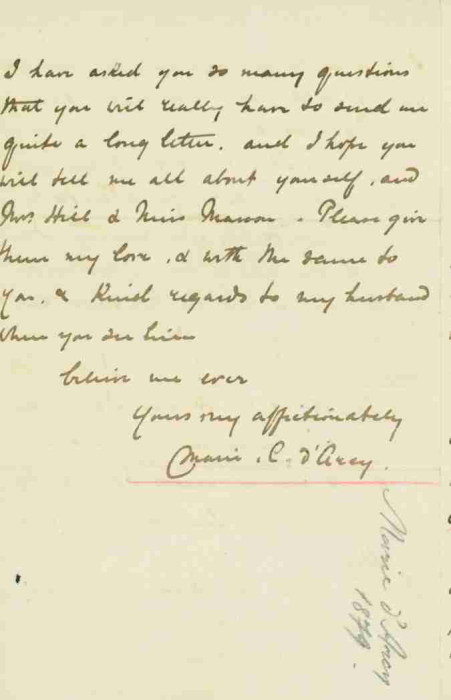 I have asked you so many questions
that you will really have to send me
quite a long letter. and I hope you
will tell me all about yourself, and
Mrs Hill & Miss Manson. Please give
them my love, & with the same to
you, & kind regards to my husband
when you see him
believe me ever
Yours very affectionately
Marie. C. d'Arcy.
Marie d'Arcy
1879.